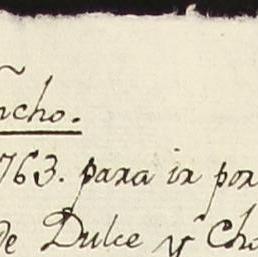 ncho.
763. para ir por
de Dulce y Cho